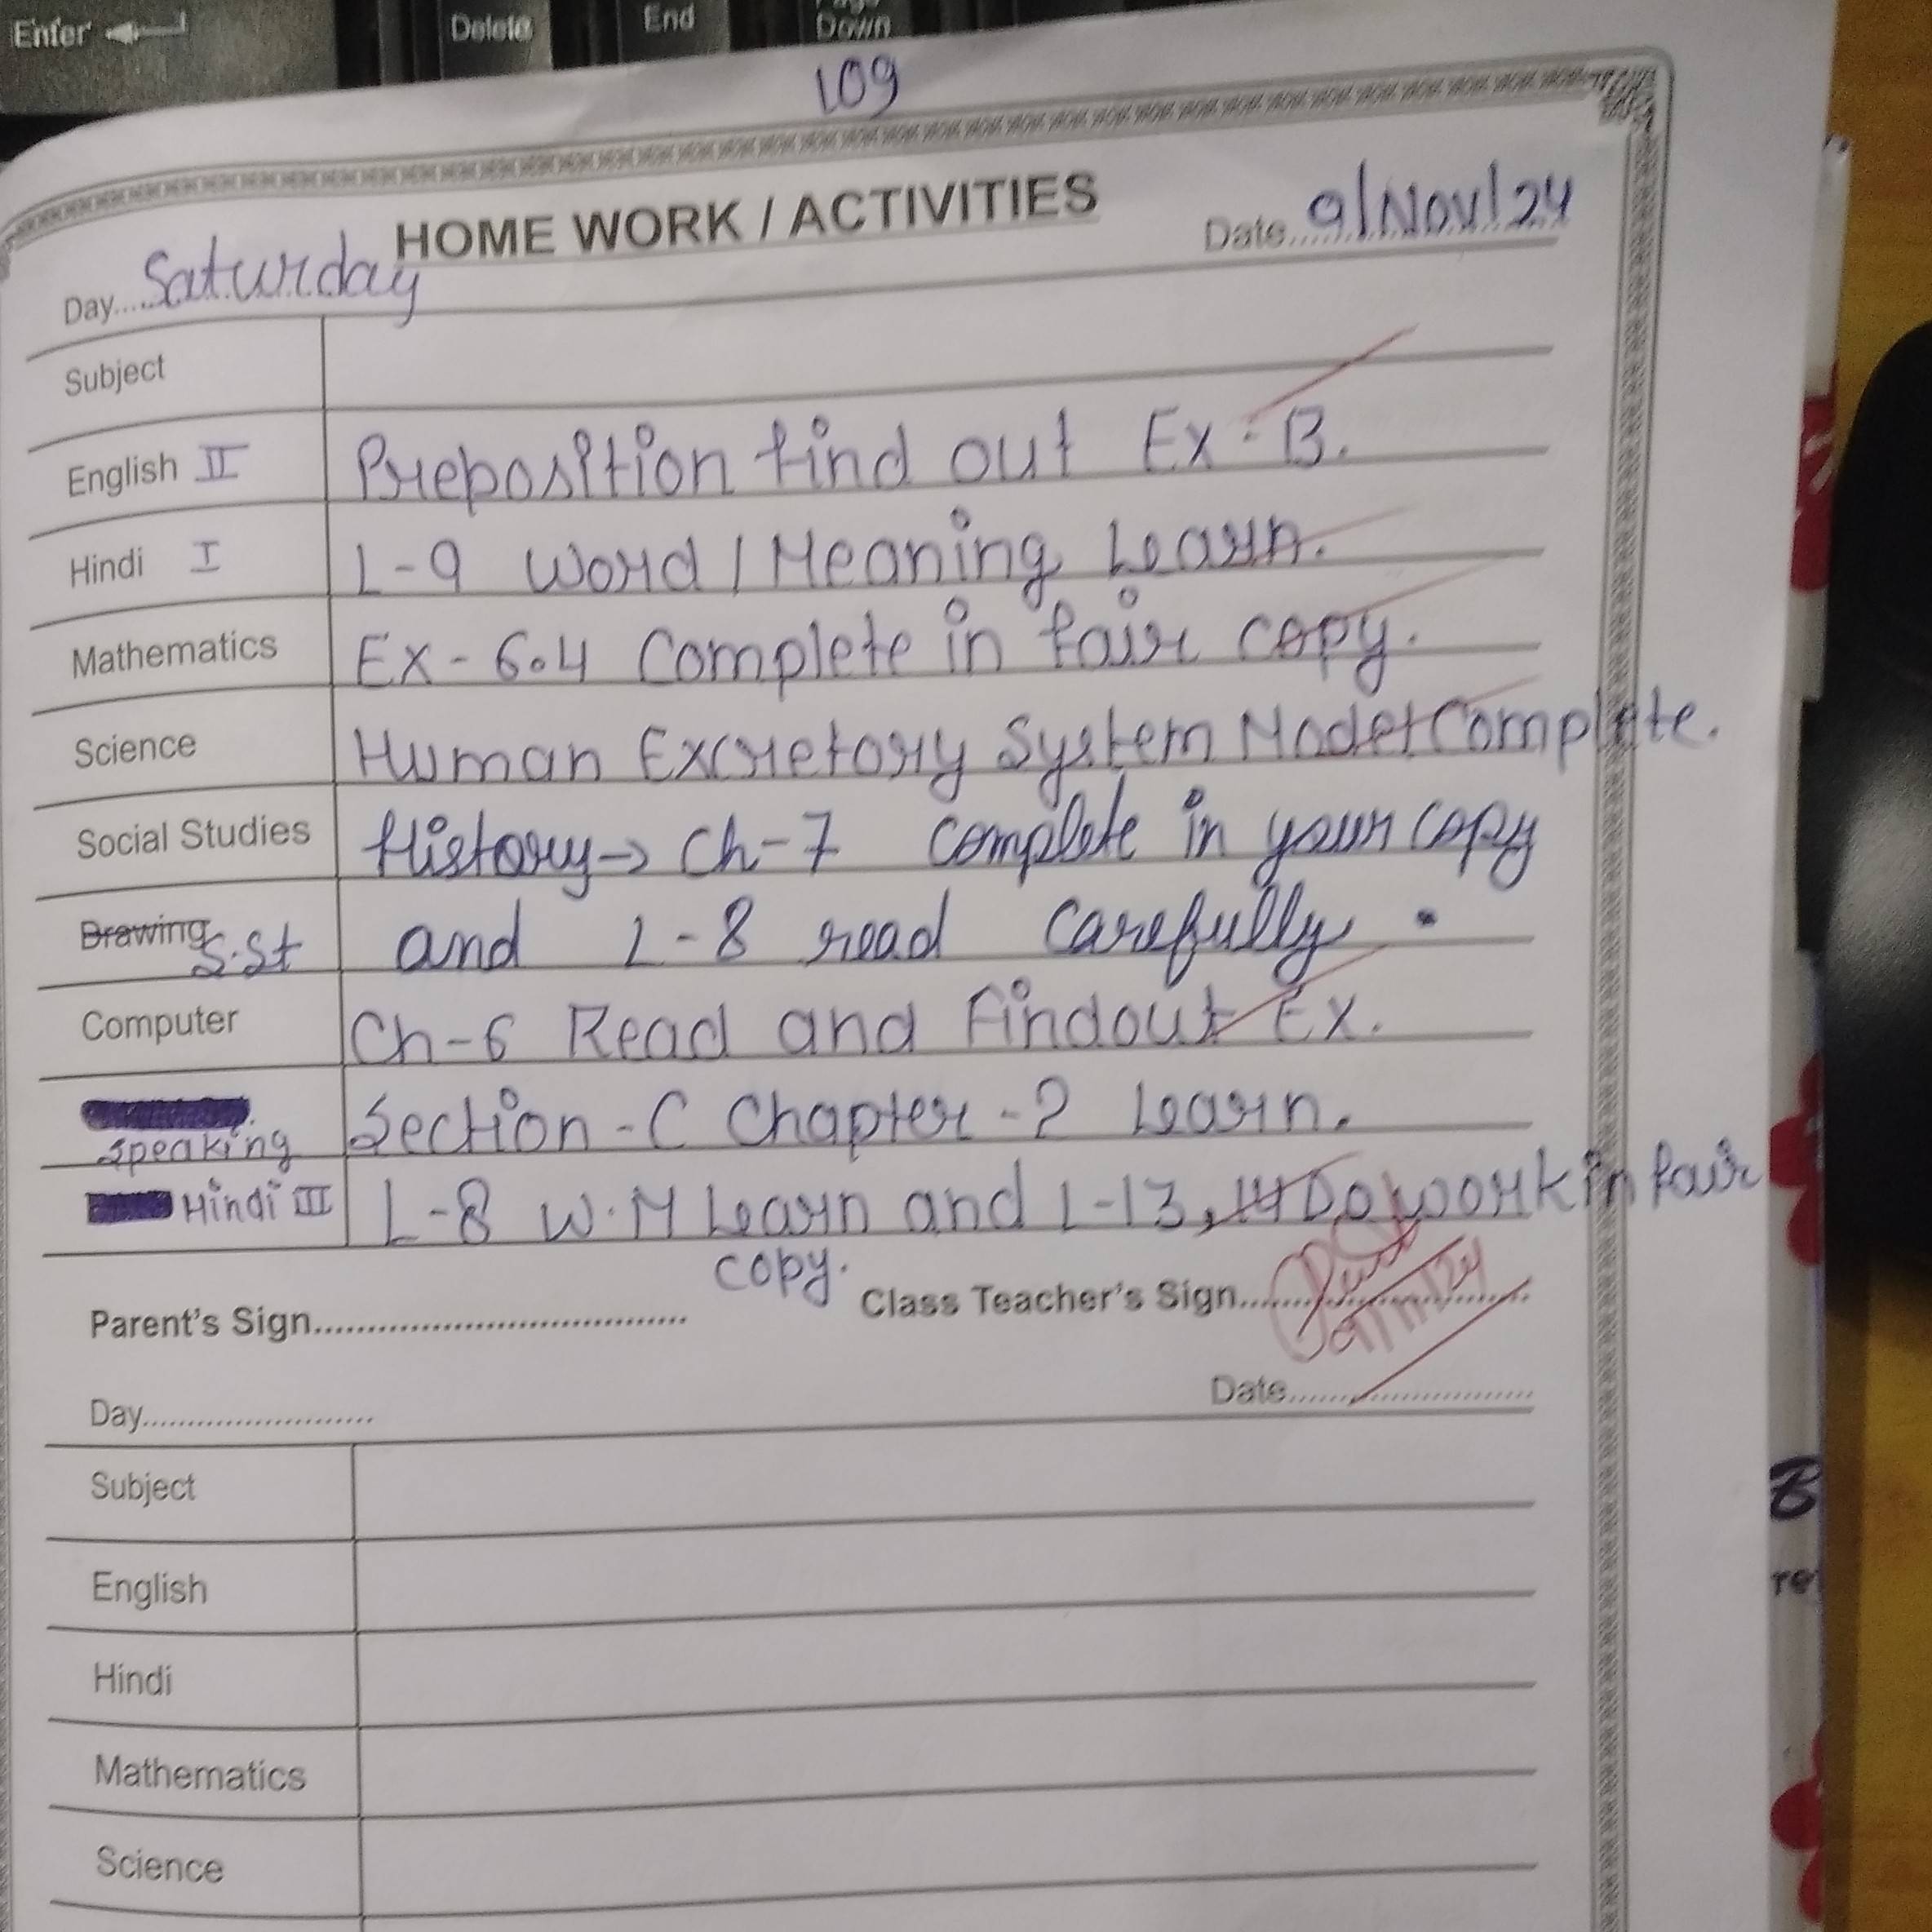 Enter
Delete
End
Page Down
109
HOME WORK / ACTIVITIES
Day....Saturday Date..9/Nov/24
Subject
English II Preposition find out Ex-B.
Hindi I L-9 Word/Meaning Learn.
Mathematics Ex-6.4 Complete in fair copy.
Science Human Excretory System Model Complete.
Social Studies History→ Ch-7 complete in your copy
Drawing S.St and L-8 read carefully.
Computer Ch-6 Read and Findout Ex.
speaking Section-C Chapter-2 Learn.
Hindi III L-8 W.M Learn and L-13, 14 Do work in fair
copy.
Parent's Sign.................................... Class Teacher's Sign.........
9/11/24
Day......................... Date.........................
Subject
English
Hindi
Mathematics
Science